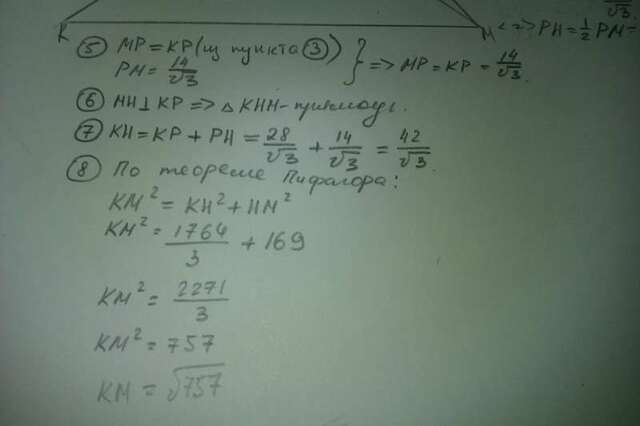 √3.
К М <=> PH = 1/2 PM =
⑤ MP = KP (из пункта ③) } => MP = KP = 14/√3.
PM = 14/√3
⑥ MH ⊥ KP => △ KHM - прямоуг.
⑦ KH = KP + PH = 28/√3 + 14/√3 = 42/√3.
⑧ По теореме Пифагора:
KM² = KH² + HM²
KM² = 1764/3 + 169
KM² = 2271/3
KM² = 757
KM = √757